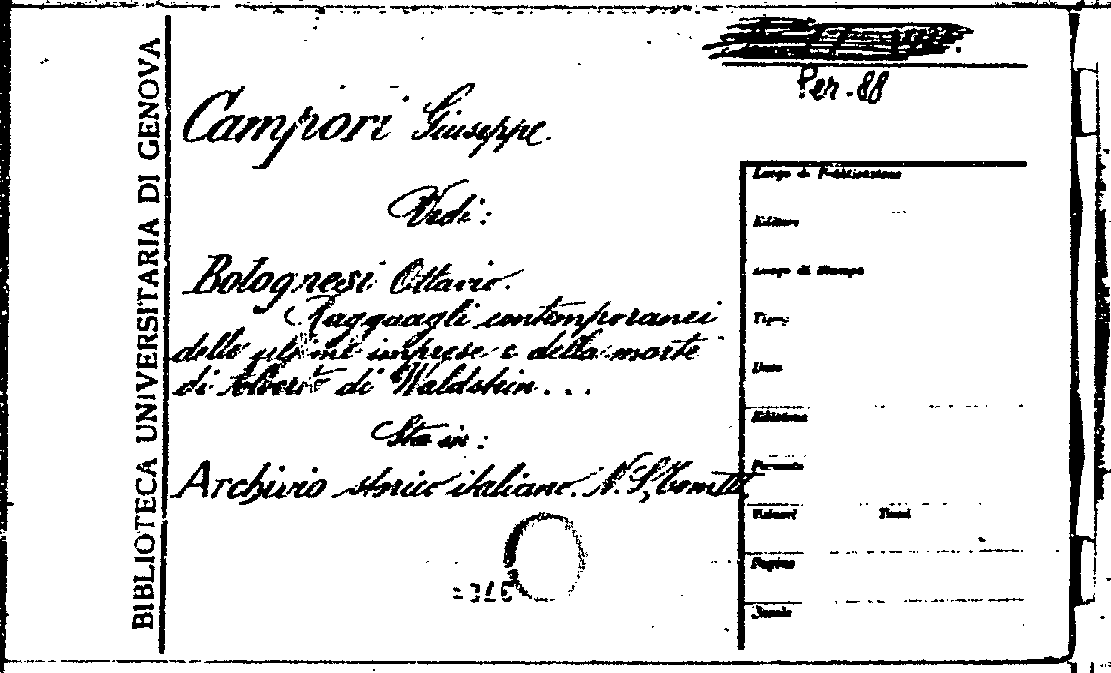 BIBLIOTECA UNIVERSITARIA DI GENOVA
Per. 88
Campori Giuseppe.
Vedi:
Bolognesi Ottavio.
Ragguagli contemporanei
delle ultime imprese e della morte
di Alberto di Waldstein...
Sta in:
Archivio storico italiano. N. S.,
Luogo di Pubblicazione
Editore
Luogo di Stampa
Tipog.
Data
Edizione
Formato
Volumi
Pagine